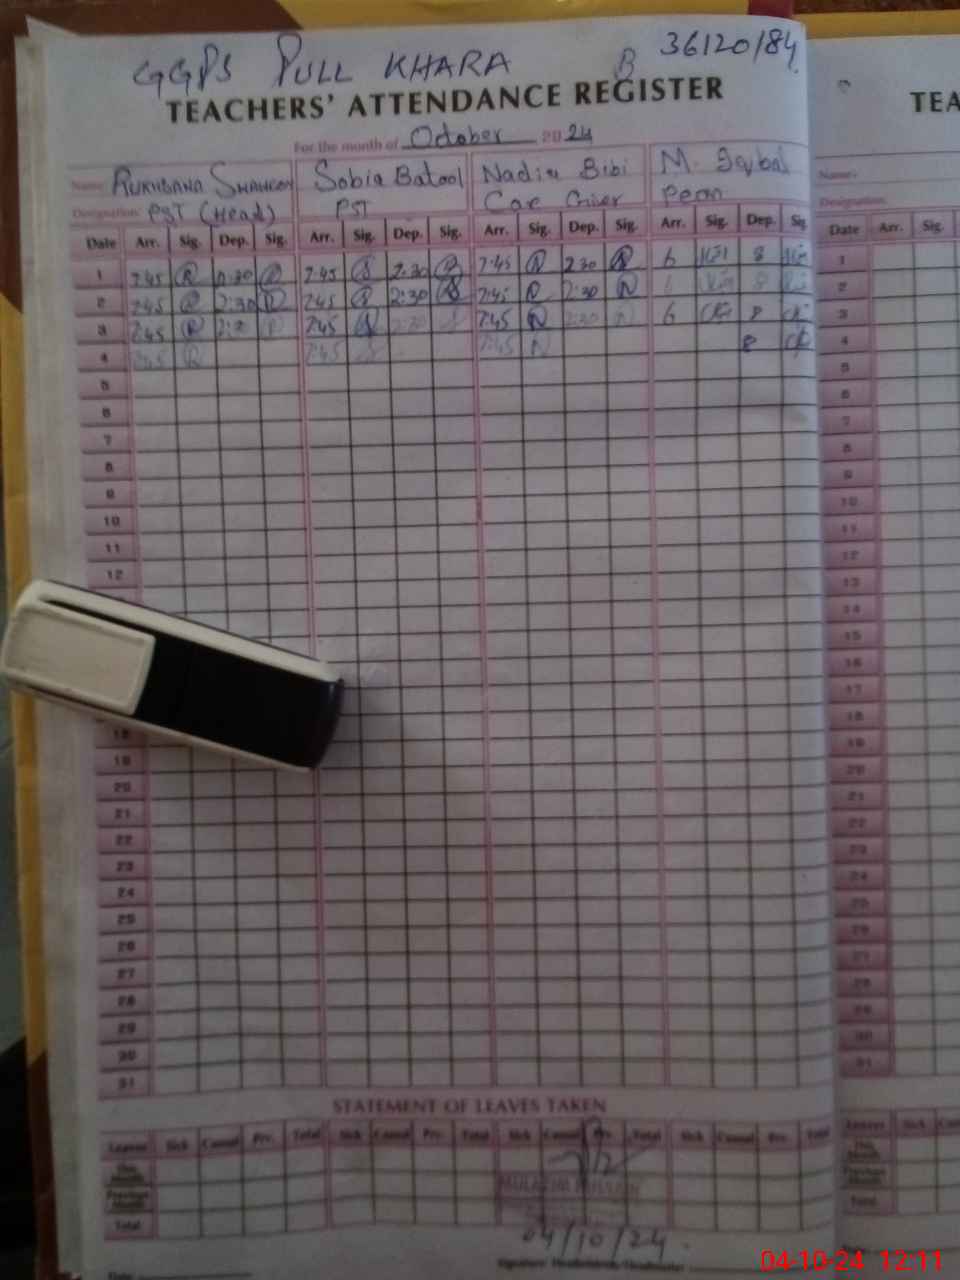 GGPS PULL KHARA B 36120184
TEACHERS' ATTENDANCE REGISTER
For the month of October 2024
Name: RUKHSANA SHAHEEN Sobia Batool Nadia Bibi M. Iqbal
Designation: PST (Head) PST Care Giver Peon
Date Arr. Sig. Dep. Sig. Arr. Sig. Dep. Sig. Arr. Sig. Dep. Sig. Arr. Sig. Dep. Sig.
1 7:45 7:45 2:30 7:45 2:30 6 8
2 7:45 2:30 7:45 2:30 7:45 2:30 8
3 7:45 7:45 2:30 7:45 2:30 6 8
4 7:45 7:45 7:45 8
5
6
7
8
9
10
11
12
18
19
20
21
22
23
24
25
26
27
28
29
30
31
STATEMENT OF LEAVES TAKEN
Leaves Sick Casual Prv. Total Sick Casual Prv. Total Sick Casual Prv. Total Sick Casual Prv. Total
This Month
Previous Month
Total
04/10/24
Date
Signature Headmistress/Headmaster
TEA
Name:
Designation:
Date Arr. Sig.
1
2
3
4
5
6
7
8
9
10
11
12
13
14
15
16
17
18
19
20
21
22
23
24
25
26
27
28
29
30
31
Leaves Sick
This Month
Previous Month
Total
04-10-24 12:11